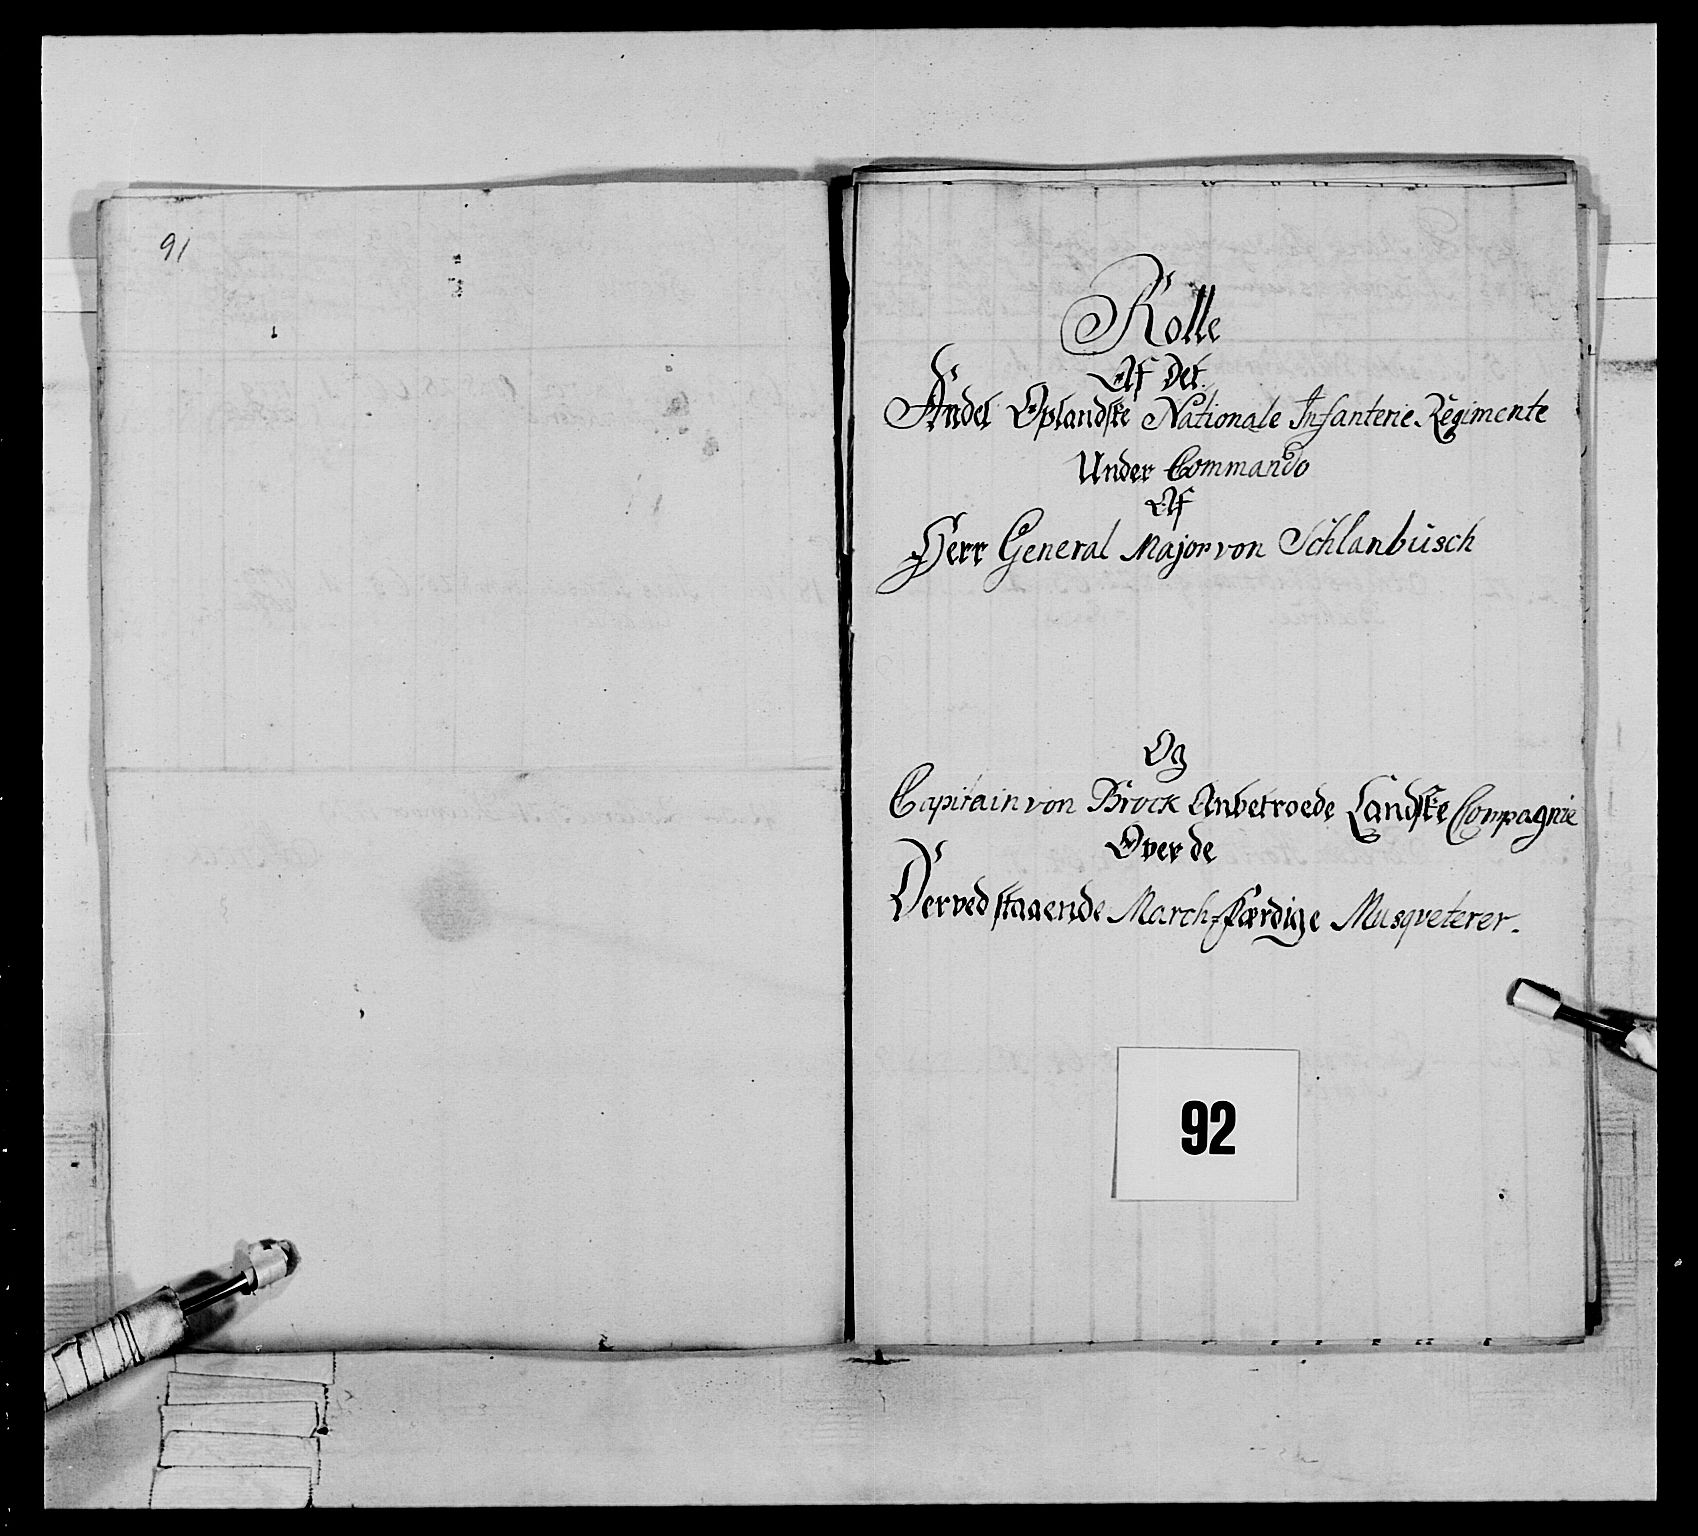 91
Rolle
Af Det
Andet Oplandske Nationale Infanterie Regimente
Under Commando
Af
Herr General Major von Schlanbusch
Og
Capitain von Brock Anbetroede Landske Compagnie
Over de
Derved staaende March-færdige Musqveterer.
92